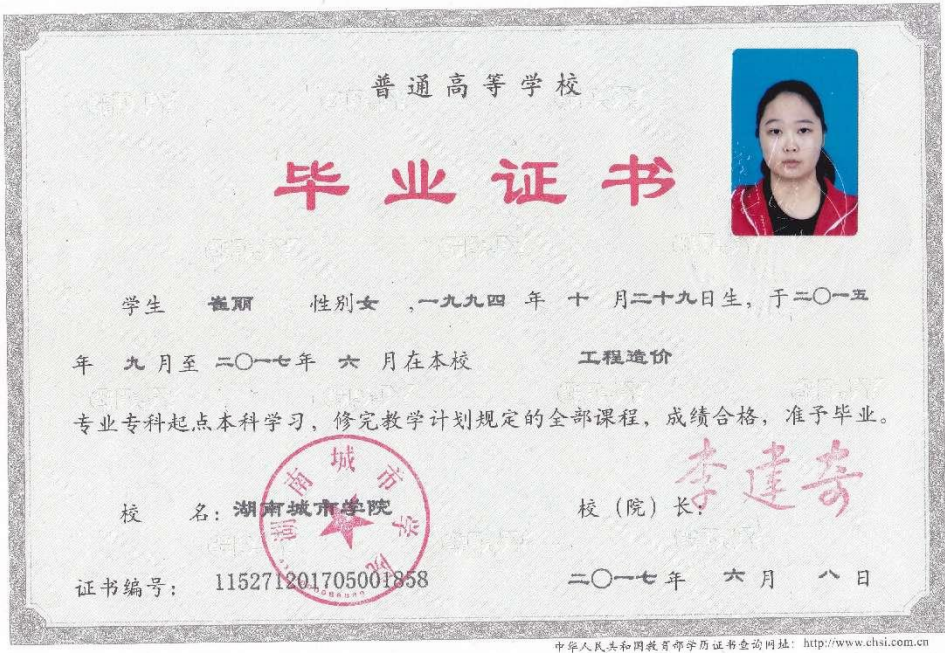 普通高等学校
毕业证书
学生 崔丽 性别女，一九九四 年 十 月二十九日生，于二〇一五
年 九 月至 二〇一七年 六 月在本校 工程造价
专业专科起点本科学习，修完教学计划规定的全部课程，成绩合格，准予毕业。
校 名：湖南城市学院
湖南城市学院
校（院）长：
李建奇
证书编号： 115271201705001858
二〇一七年 六 月 八 日
中华人民共和国教育部学历证书查询网址：http://www.chsi.com.cn